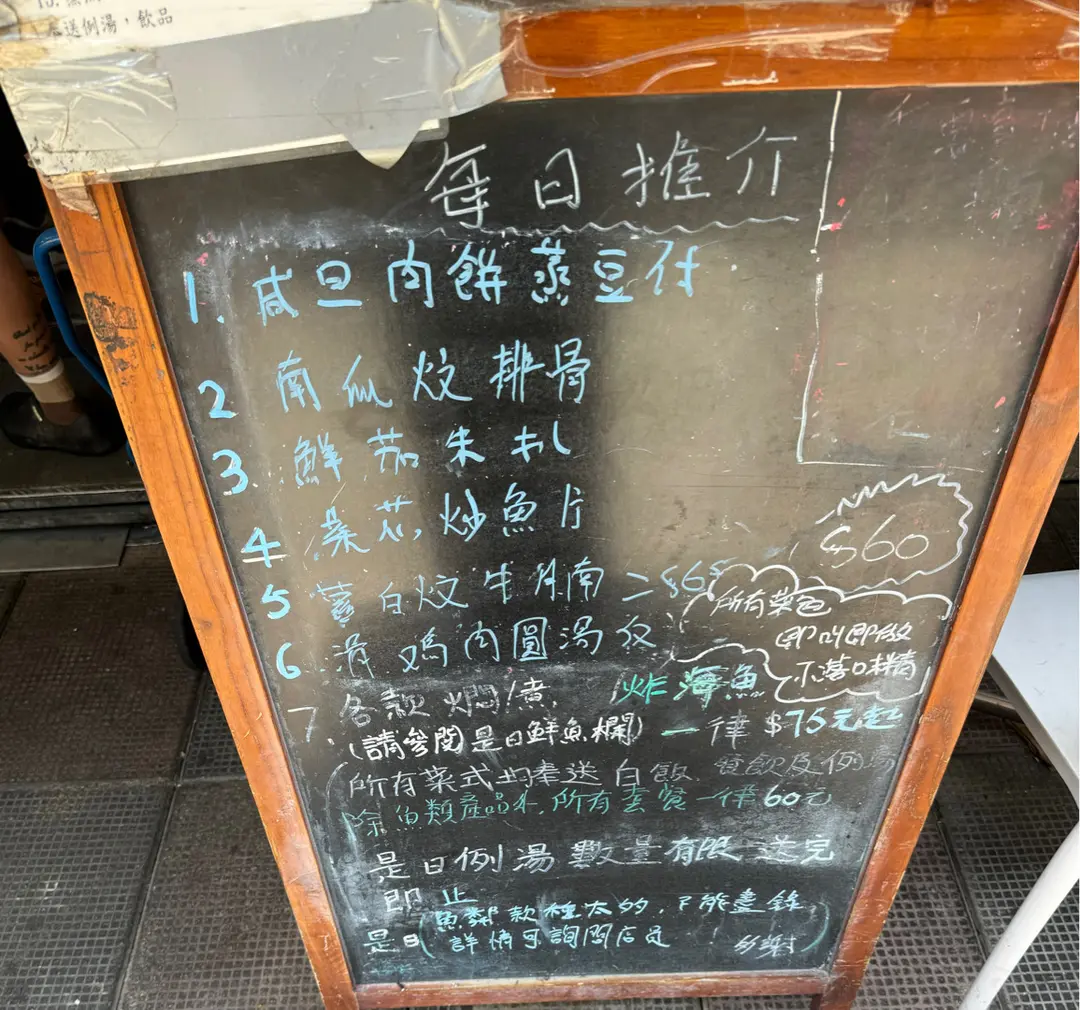 后送例湯，飲品
每日推介
1. 咸旦肉餅蒸豆付
2 南瓜炆排骨
3. 鮮茄朱扒
4 菜花炒魚片
$60
5 蘿白炆牛腩 = $68
所有菜色
即叫即做
不落口精
6 滑鸡肉圓湯
7. 各款焗/煮, 炸海魚
(請參閱是日鮮魚欄) 一律 $75元起
所有菜式均奉送白飯, 餐飲及例湯
除魚類產品外, 所有套餐一律60元
是日例湯數量有限 送完
即止
是日(魚類款種太多, 不能盡錄,
詳情可詢問店員 多謝)